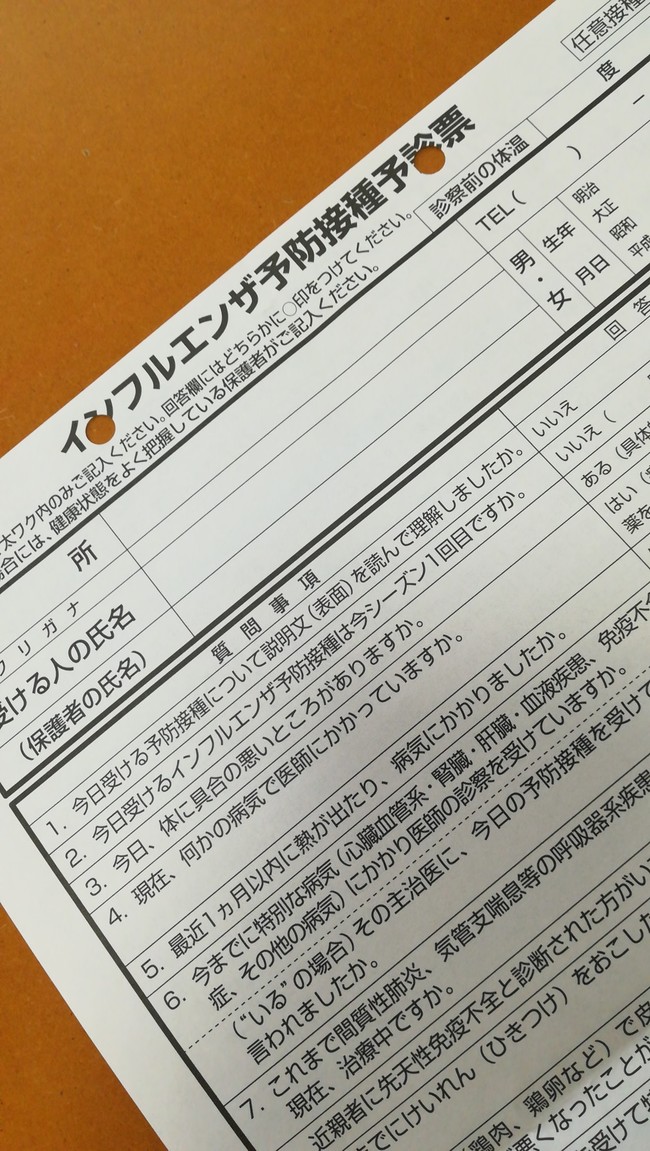 任意接種
インフルエンザ予防接種予診票
太ワク内のみご記入ください。回答欄にはどちらかに○印をつけてください。
場合には、健康状態をよく把握している保護者がご記入ください。
診察前の体温
度
所
TEL( )
ー
フリガナ
受ける人の氏名
(保護者の氏名)
男・女
生年月日
明治
大正
昭和
平成
質問事項
回答
1. 今日受ける予防接種について説明文(表面)を読んで理解しましたか。
いいえ
2. 今日受けるインフルエンザ予防接種は今シーズン1回目ですか。
いいえ(
3. 今日、体に具合の悪いところがありますか。
ある(具体
4. 現在、何かの病気で医師にかかっていますか。
はい(
薬を
5. 最近1ヵ月以内に熱が出たり、病気にかかりましたか。
6. 今までに特別な病気(心臓血管系・腎臓・肝臓・血液疾患、免疫不全
症、その他の病気)にかかり医師の診察を受けていますか。
(“いる”の場合)その主治医に、今日の予防接種を受けて
言われましたか。
7. これまで間質性肺炎、気管支喘息等の呼吸器系疾患
現在、治療中ですか。
近親者に先天性免疫不全と診断された方がい
までにけいれん(ひきつけ)をおこした
鶏肉、鶏卵など)で皮
悪くなったことが
を受けて特